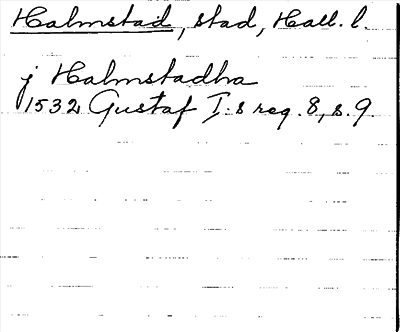 Halmstad, stad, Hall. l.
j Halmstadha
1532 Gustaf I:s reg. 8, s. 9.